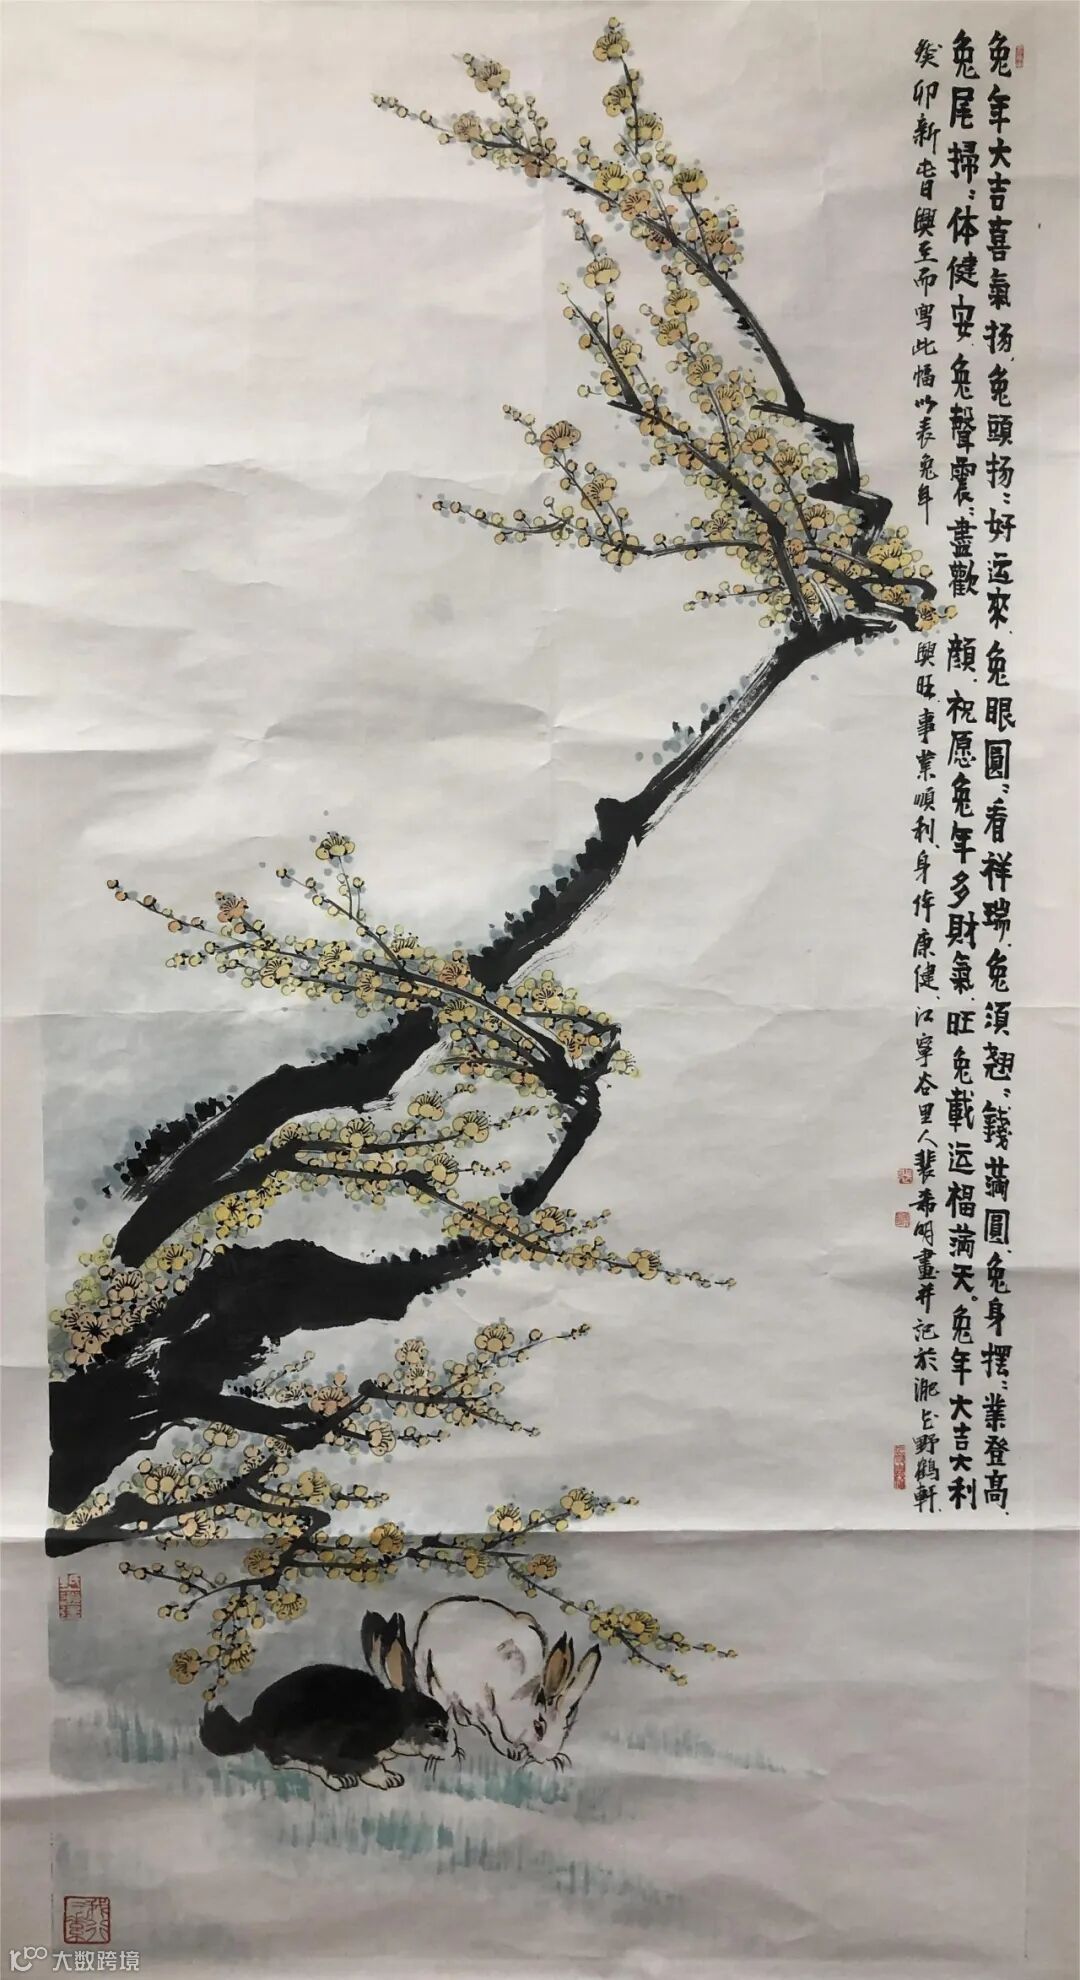 兔年大吉喜氣扬、兔頭扬〻好运來、兔眼圓〻看祥瑞、兔須翘〻錢满圓、兔身摆〻業登高、
兔尾掃〻体健安、兔聲震〻盡歡顔、祝愿兔年多財氣、旺兔載运福满天。兔年大吉大利
癸卯新旾興至而寫此幅以表兔年興旺、事業順利、身体康健、江寧谷里人裴希明畫并記於淝上野鶴軒、
大数跨境